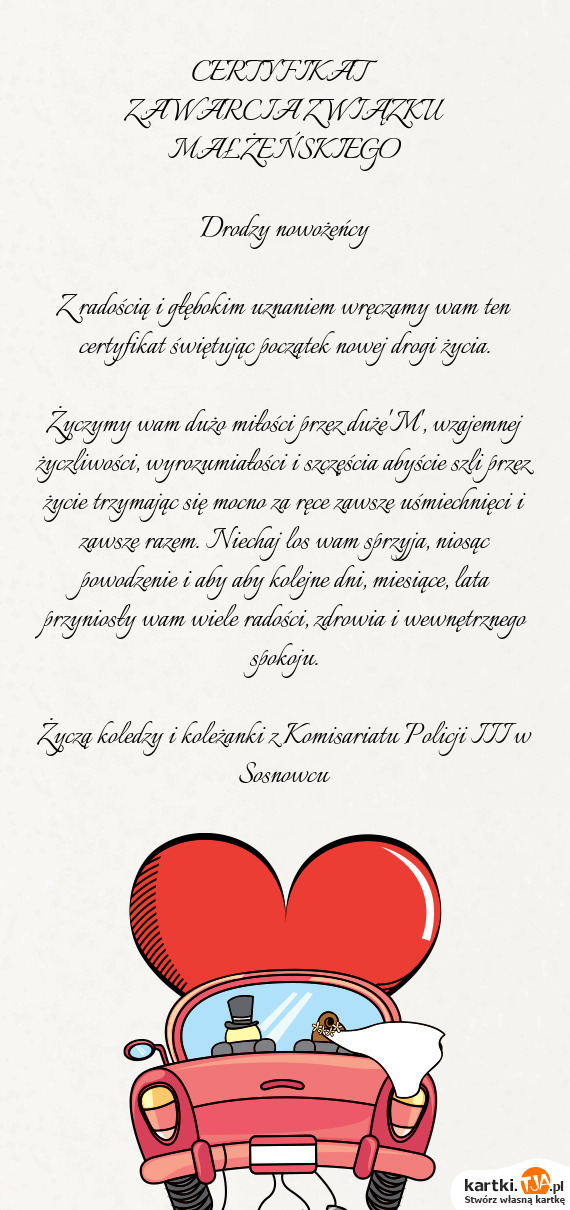 CERTYFIKAT
ZAWARCIA ZWIĄZKU
MAŁŻEŃSKIEGO
Drodzy nowożeńcy
Z radością i głębokim uznaniem wręczamy wam ten
certyfikat świętując początek nowej drogi życia.
Życzymy wam dużo miłości przez duże'M', wzajemnej
życzliwości, wyrozumiałości i szczęścia abyście szli przez
życie trzymając się mocno za ręce zawsze uśmiechnięci i
zawsze razem. Niechaj los wam sprzyja, niosąc
powodzenie i aby aby kolejne dni, miesiące, lata
przyniosły wam wiele radości, zdrowia i wewnętrznego
spokoju.
Życzą koledzy i koleżanki z Komisariatu Policji III w
Sosnowcu
kartki.TJA.pl
Stwórz własną kartkę